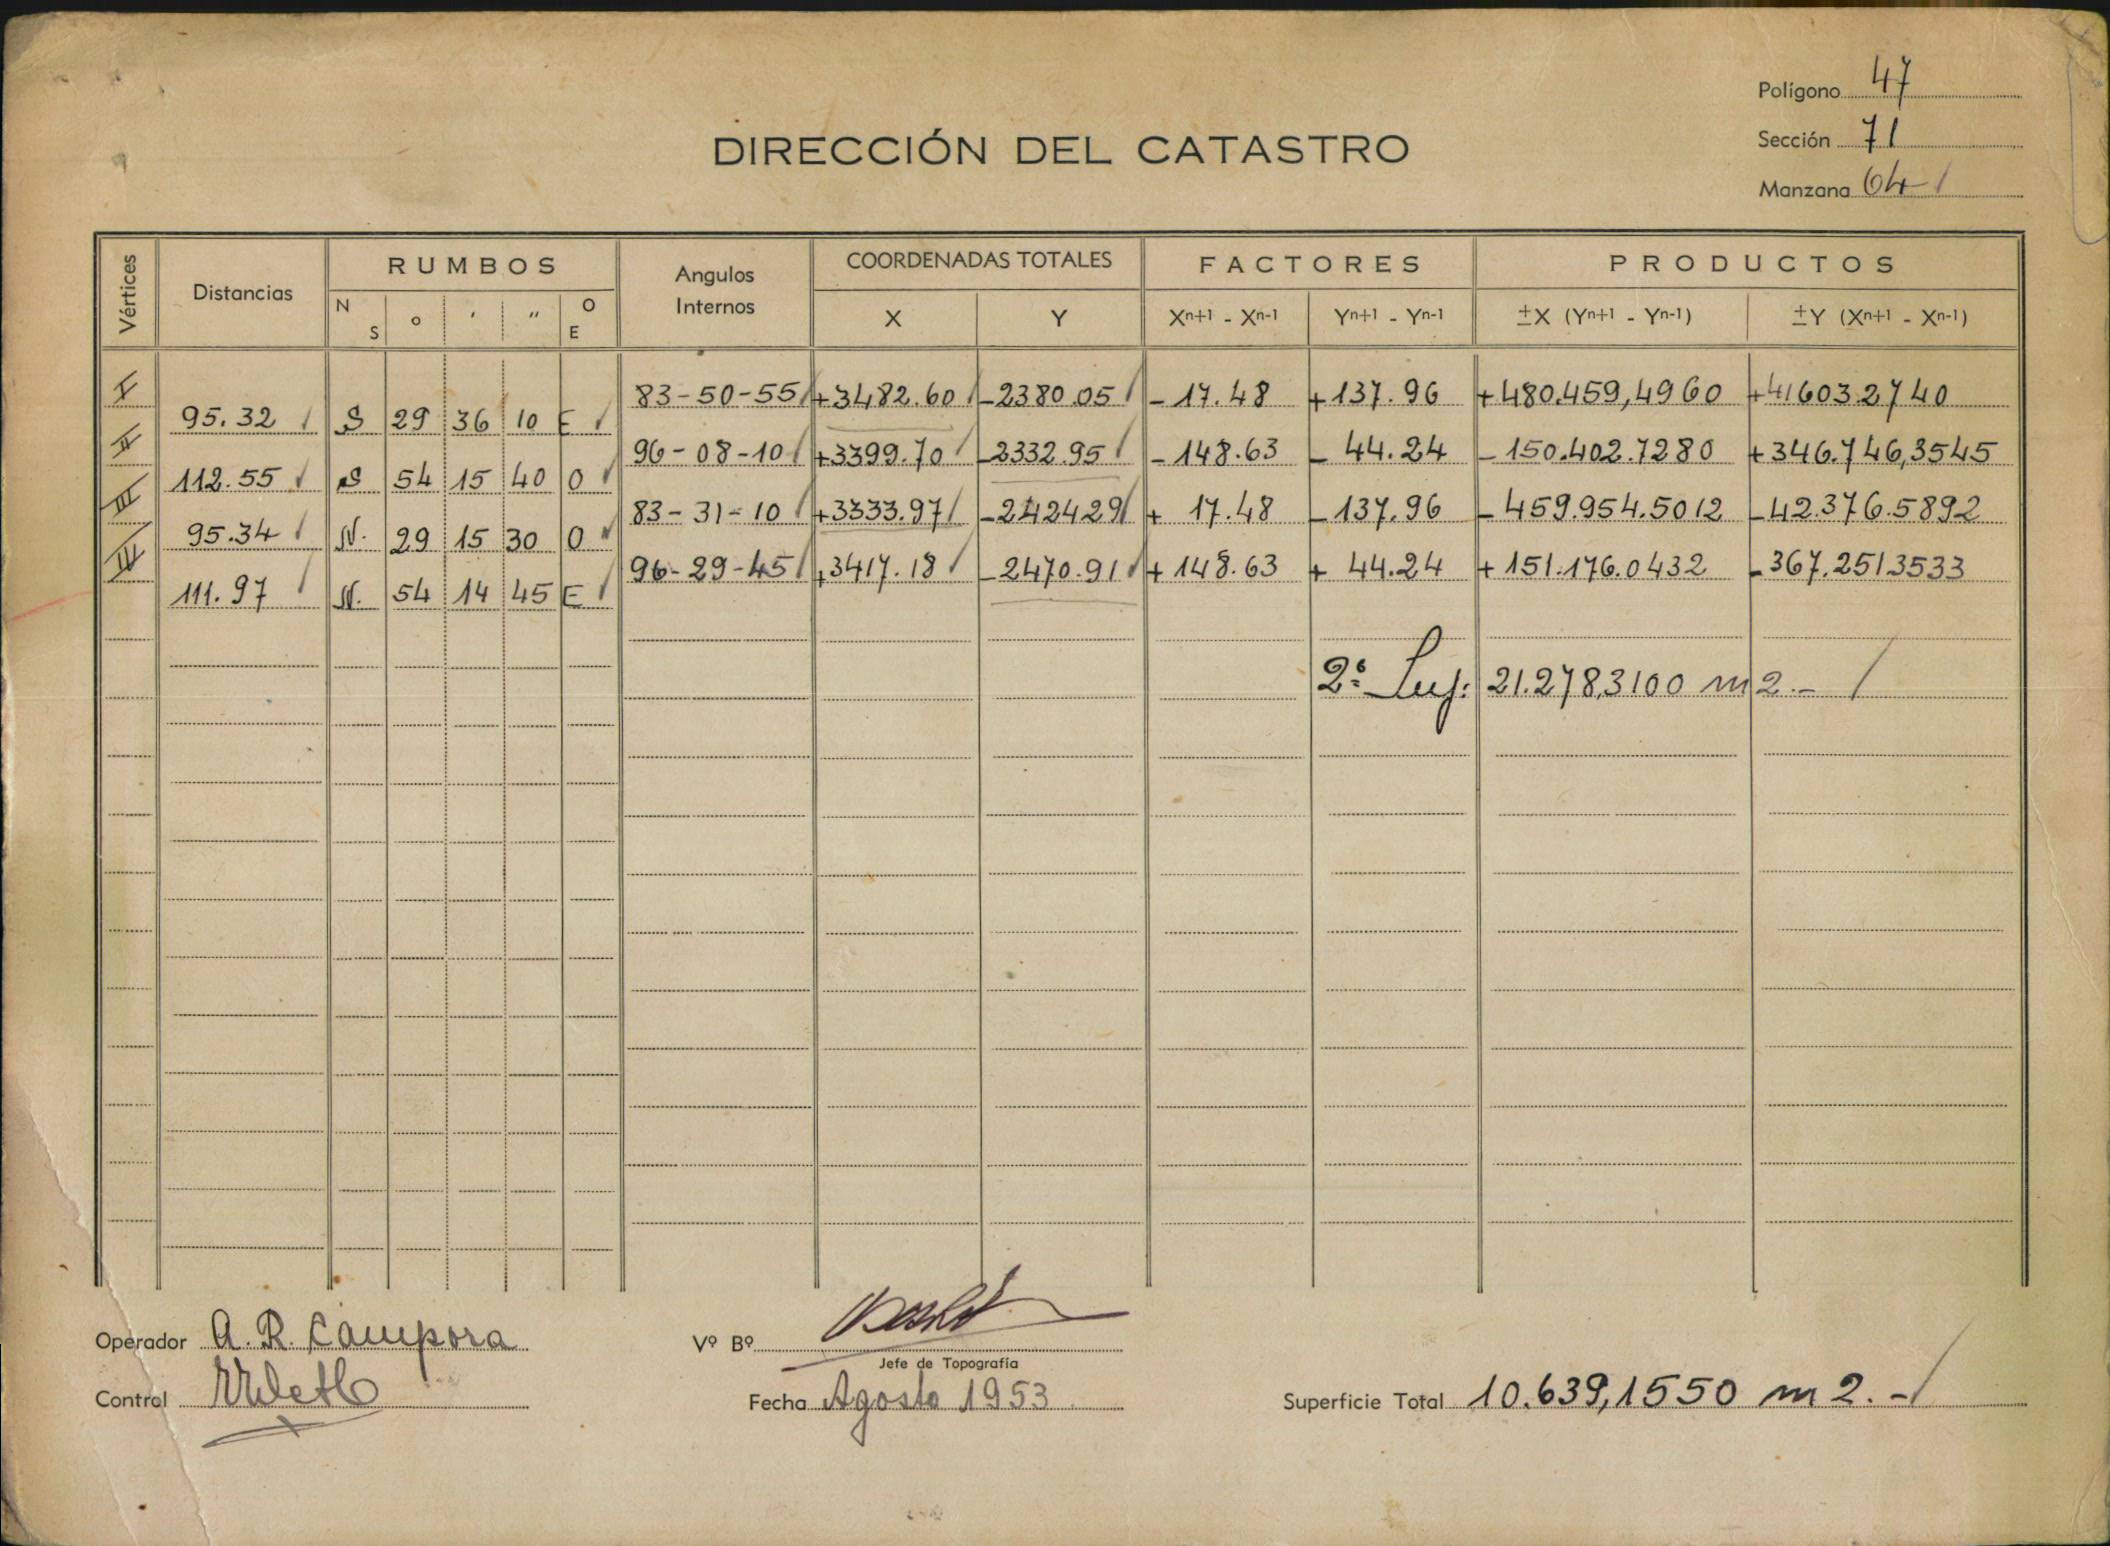 Polígono 47
DIRECCIÓN DEL CATASTRO
Sección 71
Manzana 64
Vértices Distancias RUMBOS Angulos Internos COORDENADAS TOTALES FACTORES PRODUCTOS
N S o ' " O E X Y Xn+1 - Xn-1 Yn+1 - Yn-1 ±X (Yn+1 - Yn-1) ±Y (Xn+1 - Xn-1)
I 83-50-55 +3482.60 -2380.05 -17.48 +137.96 +480.459,4960 +41603.2740
95.32 S 29 36 10 E
II 96-08-10 +3399.70 -2332.95 -148.63 -44.24 -150.402.7280 +346.746,3545
112.55 S 54 15 40 O
III 83-31-10 +3333.97 -242429 +17.48 -137.96 -459.954.5012 -42.376.5892
95.34 N. 29 15 30 O
IV 96-29-45 +3417.18 -2470.91 +148.63 +44.24 +151.176.0432 -367.2513533
111.97 N. 54 14 45 E
2: Sup: 21.278,3100 m2.-
Operador A. R. Campora
Vº Bº
Jefe de Topografía
Control
Fecha Agosto 1953
Superficie Total 10.639,1550 m2.-